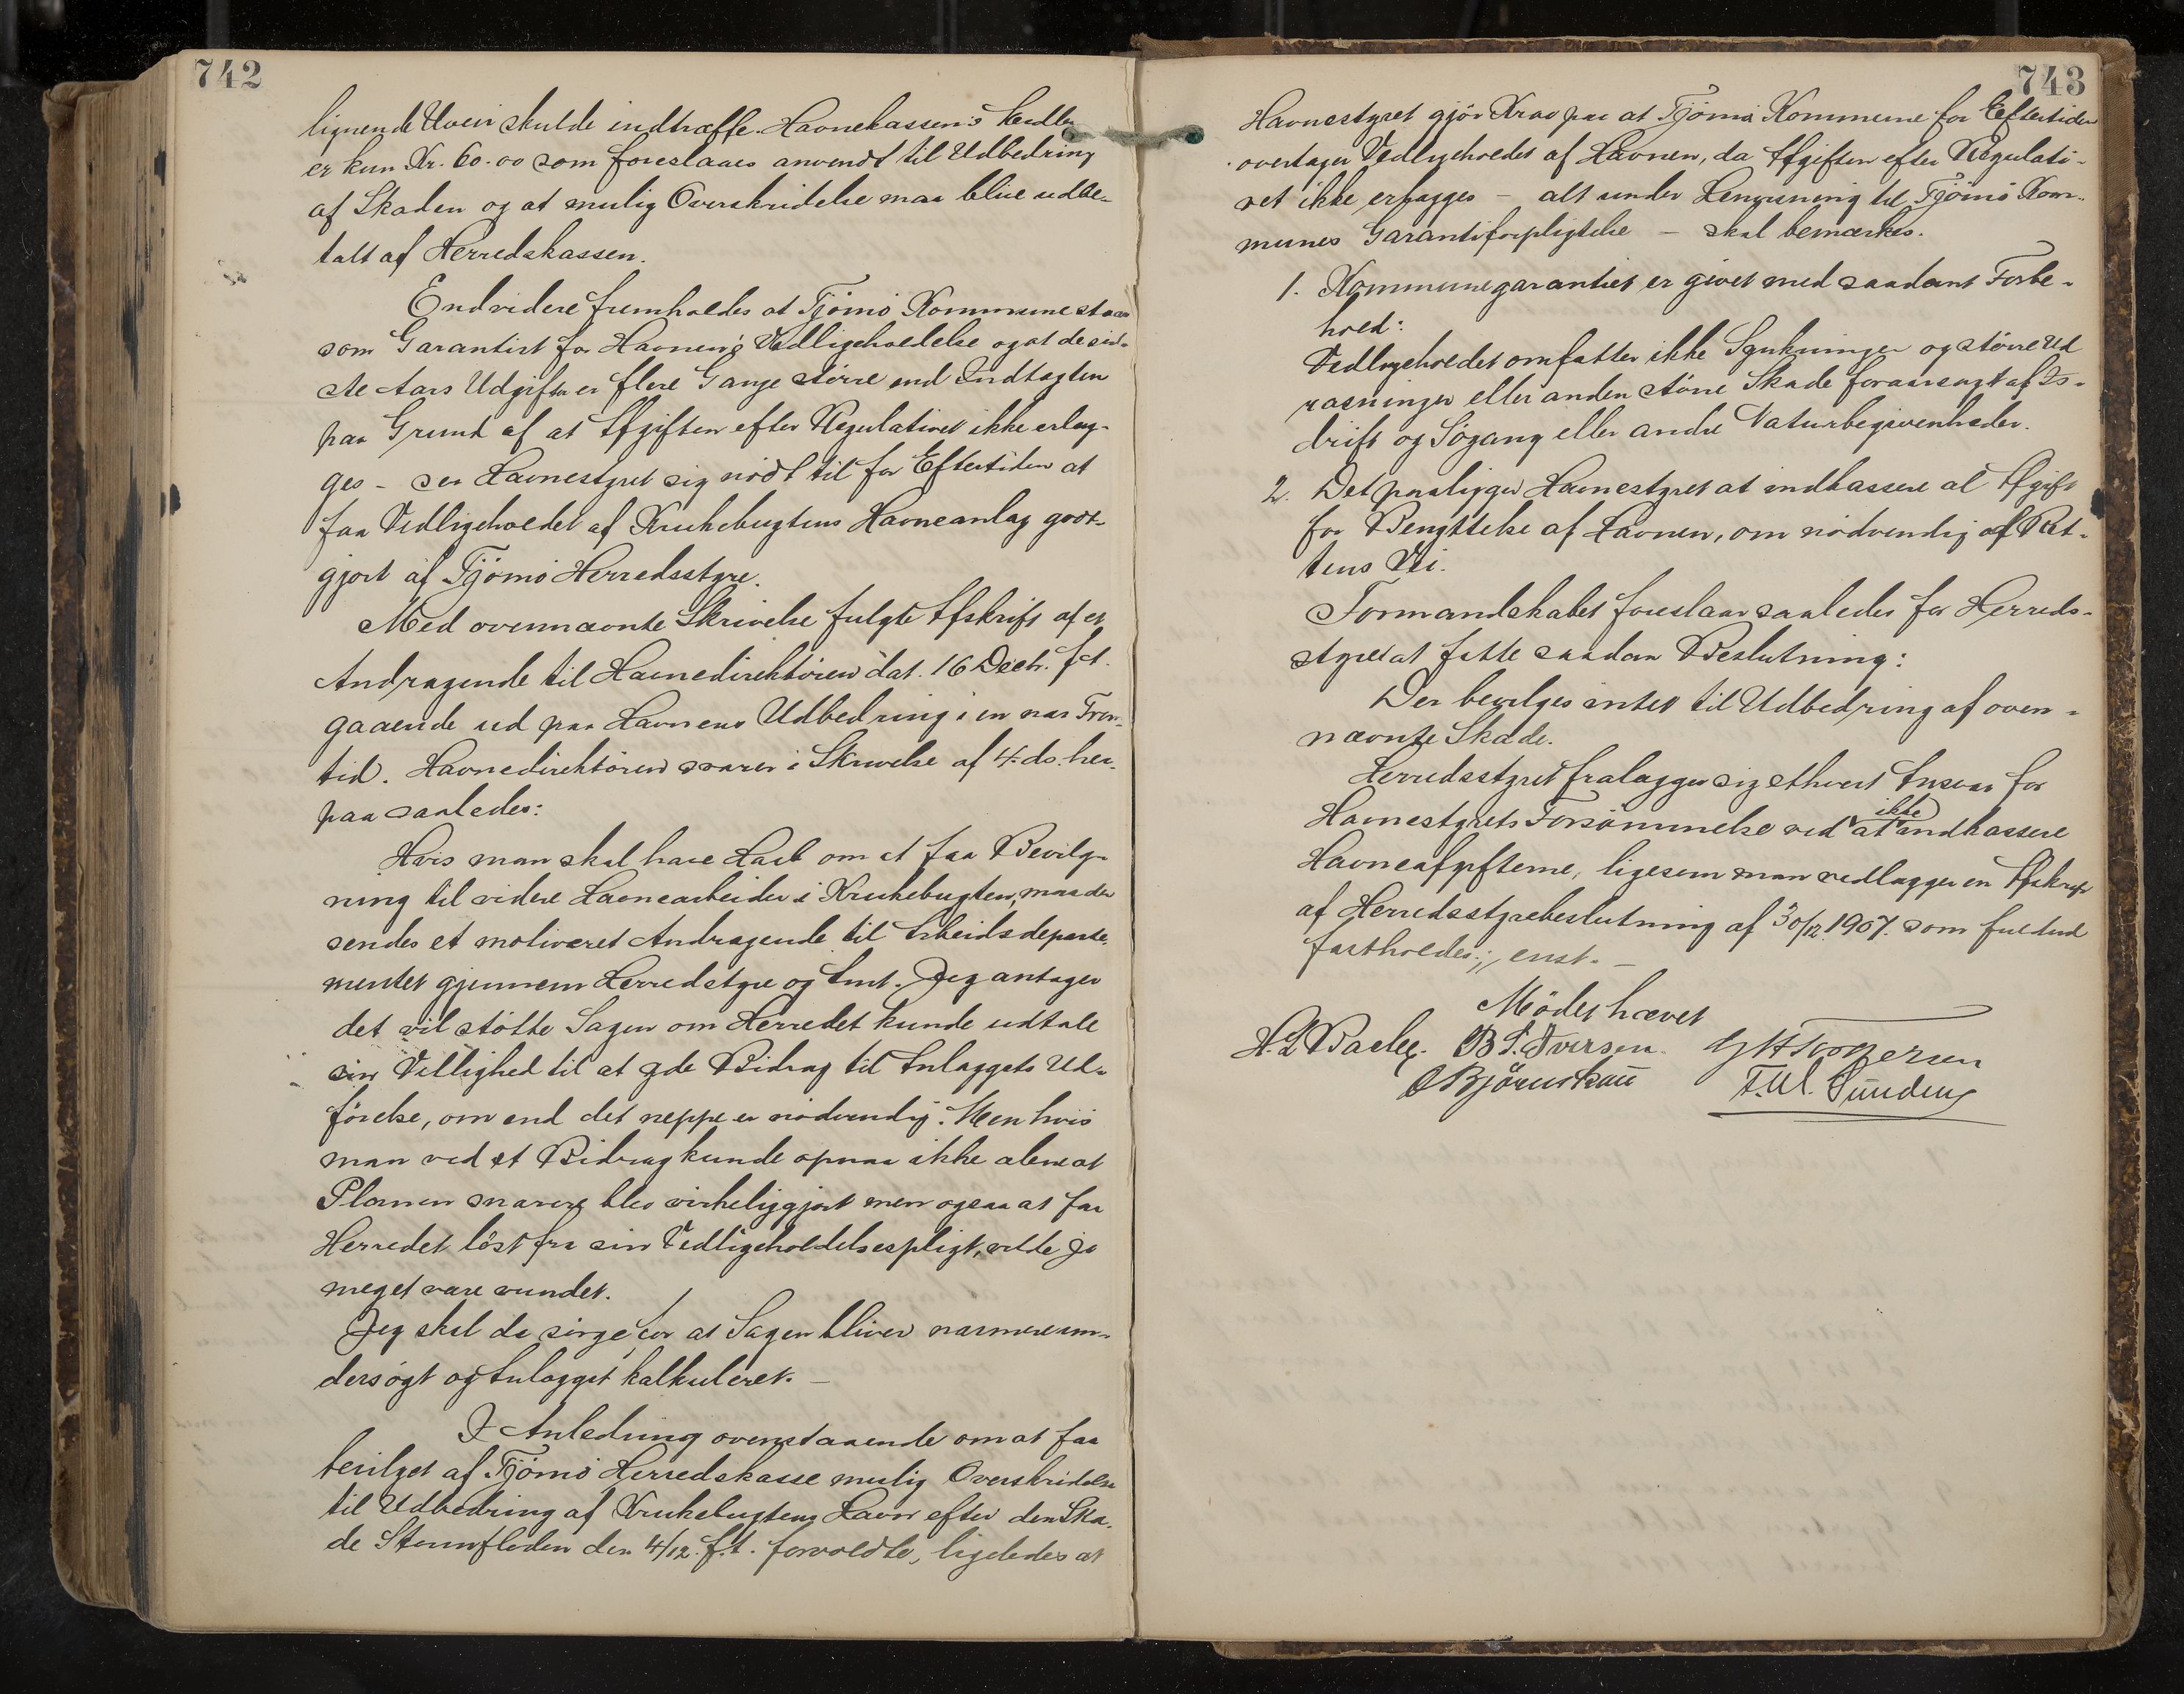 742
lignende Uveir skulde indtræffe. Havnekassen's Midler
er kun Kr. 60.00 som foreslaaes anvendt til Udbedring
af Skaden og at mulig Overskridelse maa blive udbe-
talt af Herredskassen.
Endvidere fremholdes at Tjømø Kommune staar
som Garantist for Havnen's Vedligeholdelse og at de sid-
ste Aars Udgifter er flere Gange större end Indtægten
paa Grund af at Afgiften efter Regulativet ikke erlæg-
ges - ser Havnestyret sig nödt til for Eftertiden at
faa Vedligeholdet af Krukebugtens Havneanlæg godt-
gjort af Tjömö Herredsstyre.
Med ovennævnte Skrivelse fulgte Afskrift af et
Andragende til Havnedirektören dat. 16 Decbr. f.A.
gaaende ud paa Havnens Udbedring i en nær Frem-
tid. Havnedirektören svarer i Skrivelse af 4. ds. her-
paa saaledes:
Hvis man skal have Haab om at faa Bevilg-
ning til videre Havnearbeider i Krukebugten, maa der
sendes et motiveret Andragende til Arbeidsdeparte-
mentet gjennem Herredstyre og Amt. Jeg antager
det vil stötte Sagen om Herredet kunde udtale
sin Villighed til at yde Bidrag til Anlæggets Ud-
förelse, om end det neppe er nödvendig. Men hvis
man ved et Bidrag kunde opnaa ikke alene at
Planen snarere blev virkeliggjort men ogsaa at faa
Herredet löst fra sin Vedligeholdelsespligt, vilde jo
meget være vundet.
Jeg skal da sörge for at Sagen bliver nærmere un-
dersögt og Anlægget kalkuleret. -
I Anledning ovenstaaende om at faa
bevilget af Tjömö Herredskasse mulig Overskridelse
til Udbedring af Krukebugtens Havn efter den Ska-
de Stormfloden den 4/12 f.A. forvoldte, ligeledes at
743
Havnestyret gjör Krav paa at Tjömö Kommune for Eftertiden
overtager Vedligeholdet af Havnen, da Afgiften efter Regulati-
vet ikke erlægges - alt under Henvisning til Tjömö Kom-
munes Garantiforpligtelse - skal bemærkes.
1. Kommunegarantiet er givet med saadant Forbe-
hold:
Vedligeholdet omfatter ikke Synkninger og större Ud
rasninger eller anden större Skade foraarsagt af Is-
drift og Sögang eller andre Naturbegivenheder.
2. Det paaligger Havnestyret at indkassere al Afgift
for Benyttelse af Havnen, om nödvendig af Ret-
tens Vei.
Formandskabet foreslaar saaledes for Herreds-
styret at fatte saadan Beslutning:
Der bevilges intet til Udbedring af oven-
nævnte Skade.
Herredsstyret fralægger sig ethvert Ansvar for
Havnestyrets Forsömmelse ved at ikke indkassere
Havneafgifterne, ligesom man vedlægger en Afskrift
af Herredsstyrebeslutning af 30/12. 1907. som fuldtud
fastholdes; enst. -
Mödet hævet
B S. Iversen
O Björnskau